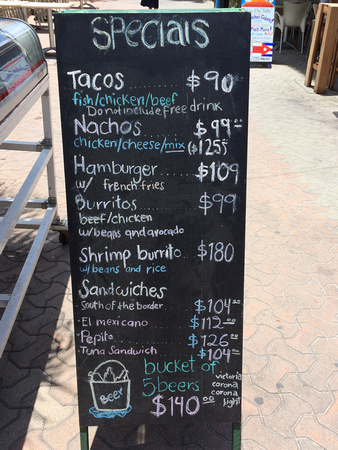 Specials
Tacos $90
fish/chicken/beef
Do not include free drink
Nachos $99.00
chicken/cheese/mix ($125)
Hamburger $109
w/ french fries
Burritos $99
beef/chicken
w/beans and avocado
Shrimp burrito $180
w/beans and rice
Sandwiches
South of the border $104.00
·El mexicano $112.00
·Pepito $126.00
·Tuna Sandwich $104.00
bucket of
5 beers
$140.00
victoria
corona
corona
light
BEER